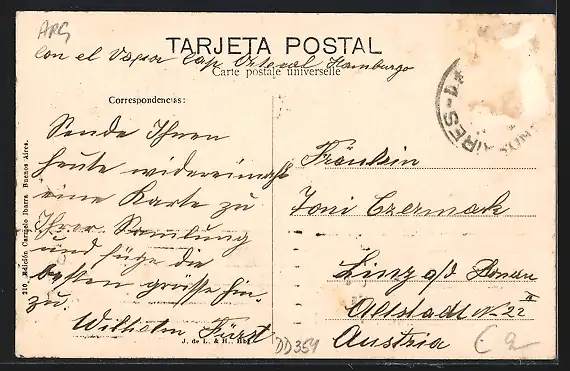 ARG
TARJETA POSTAL
Con el Vapor Cap Ortegal Hamburgo
Carte postale universelle
Correspondencias:
Sende Ihnen
heute widereinmahl
eine Karte zu
Ihrer Samlung
und füge die
besten grüsse hin-
zu.
Wilhelm Fürst
J. de L. & H.
DD354
210. Edición Carmelo Ibarra Buenos Aires.
Fräulein
Toni Czermak
Linz a/d Donau
Altstadt No 22
II
Austria
NOS AIRES-4*